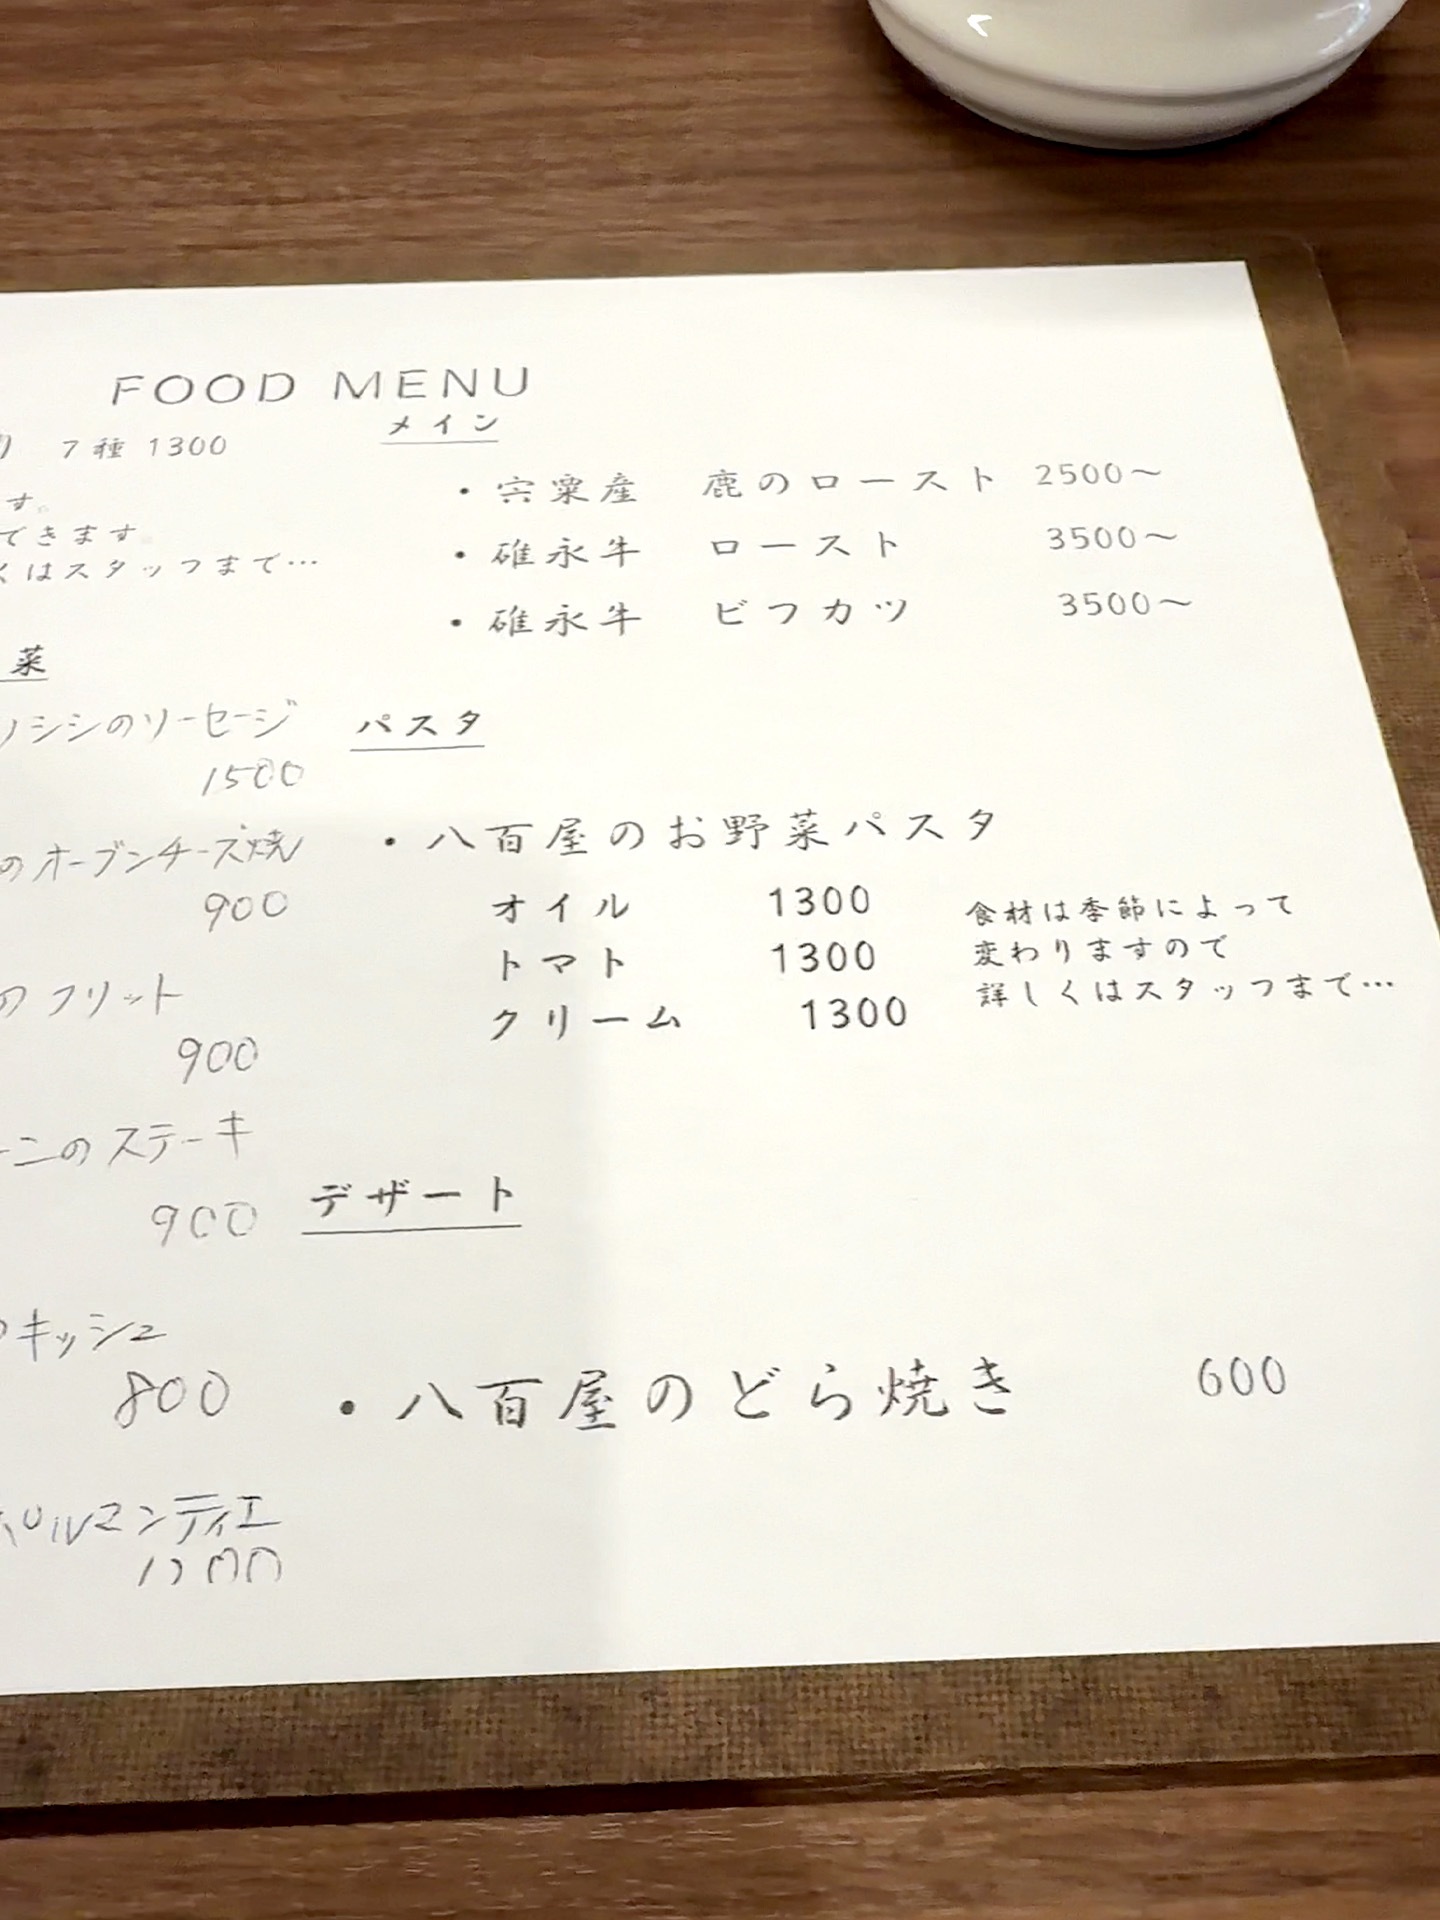 FOOD MENU
7種 1300
す。
できます
くはスタッフまで…
菜
ノシシのソーセージ
1500
のオーブンチーズ焼
900
のフリット
900
ーンのステーキ
900
キッシュ
800
パルマンティエ
メイン
・宍粟産 鹿のロースト 2500～
・碓永牛 ロースト 3500～
・碓永牛 ビフカツ 3500～
パスタ
・八百屋のお野菜パスタ
オイル 1300
トマト 1300
クリーム 1300
食材は季節によって
変わりますので
詳しくはスタッフまで…
デザート
・八百屋のどら焼き 600